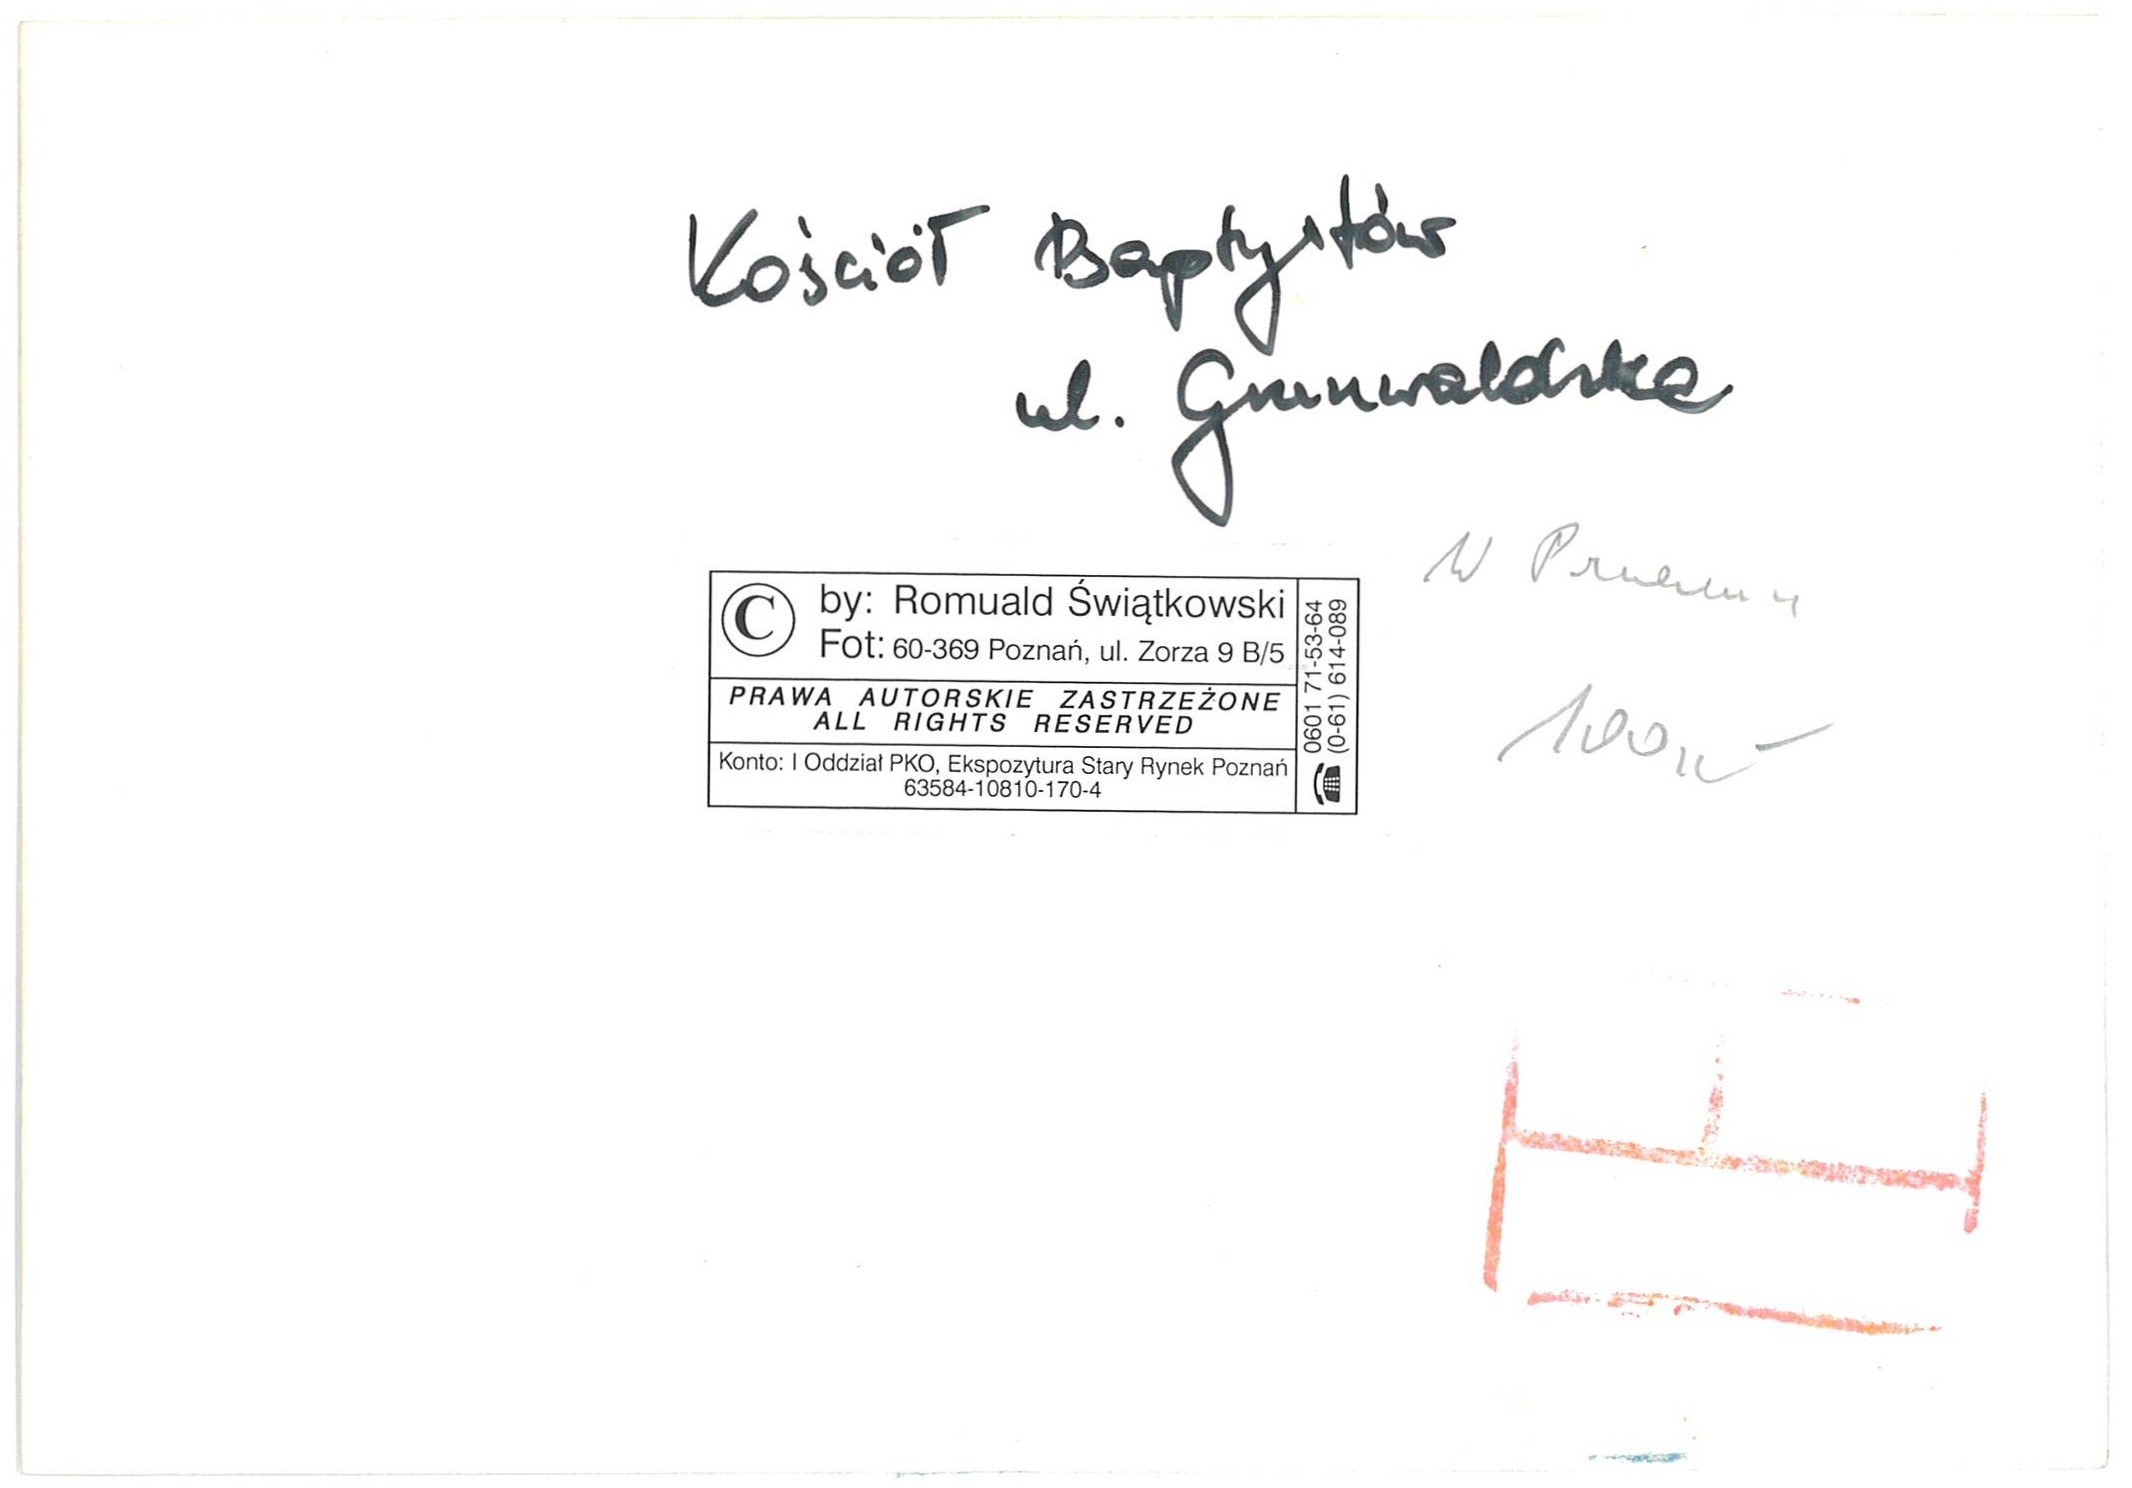 Kościół Baptystów
ul. Grunwaldzka
W
© by: Romuald Świątkowski
Fot: 60-369 Poznań, ul. Zorza 9 B/5
PRAWA AUTORSKIE ZASTRZEŻONE
ALL RIGHTS RESERVED
Konto: I Oddział PKO, Ekspozytura Stary Rynek Poznań
63584-10810-170-4
0601 71-53-64
(0-61) 614-089